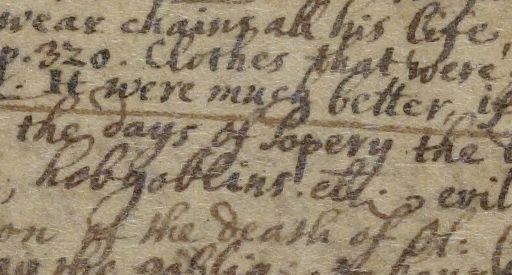 wear chains all his life,
p. 320. Clothes that were
It were much better, if
the days of popery the
, hobgoblins. etc. evil
on of the death of St:
the goblin